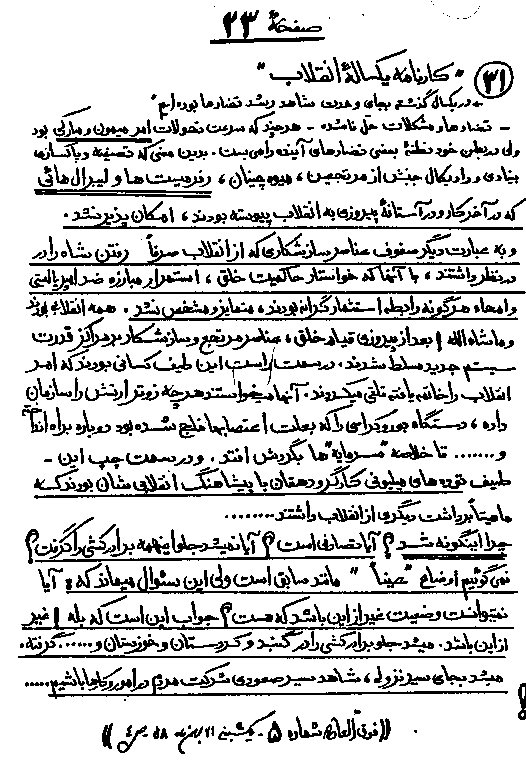 صفحهٔ ۲۳
۳۱
"کارنامه یکسالهٔ انقلاب"
- در یکسال گذشته بجای وحدت شاهد رشد تضادها بوده‌ایم"
- تضادها و مشکلات حل نشده - هرچند که سرعت تحولات امر میمون و مبارکی بود
ولی در بطن خود نطفهٔ بعضی تضادهای آینده را می‌بست. بدین معنی که تصفیه و پاکسازی
بنیادی و رادیکال جنبش از مرتجعین، میوه چینان، رفرمیست‌ها و لیبرال‌هائی
که در آخر کار و در آستانهٔ پیروزی به انقلاب پیوسته بودند، امکان پذیر نشد.
و به عبارت دیگر صفوف عناصر سازشکاری که از انقلاب صرفاً رفتن شاه را در
در نظر داشتند، با آنها که خواستار حاکمیت خلق، استمرار مبارزه ضد امپریالیستی
و امحاء هرگونه رابطه استثمارگرانه بودند، متمایز و مشخص نشد. همه انقلابی بودند
و ماشاءالله! بعد از پیروزی قیام خلق، عناصر مرتجع و سازشکار بر مراکز قدرت
سیستم جدید مسلط شدند. در سمت راست این طیف کسانی بودند که امر
انقلاب را خاتمه یافته تلقی میکردند. آنها میخواستند هر چه زودتر ارتش را سازمان
داده، دستگاه بوروکراسی را که بعلت اعتصابها فلج شده بود دوباره براه انداخته
و ....... تا خلاصه "سرمایه" ها بگردش افتد. و در سمت چپ این -
طیف توده‌های میلیونی کارگر و دهقان با پیشاهنگ انقلابی شان بودند که
ماهیتاً برداشت دیگری از انقلاب داشتند........
چرا اینگونه شد؟ آیا تصادفی است؟ آیا نمیشد جلو اینهمه برادرکشی را گرفت؟
نمی گوئیم اوضاع "عیناً" مانند سابق است ولی این سئوال میماند که: آیا
نمیتوانست وضعیت غیر از این باشد که هست؟ جواب این است که بله! غیر
از این باشد. میشد جلو برادرکشی را در گنبد و کردستان و خوزستان و ..... گرفته.
میشد بجای سیر نزولی، شاهد سیر صعودی شرکت مردم در امور و کارها باشیم.....
((فوق العاده شماره ۵ - یکشنبه ۲۱ بهمن ۵۸ ص ۴))